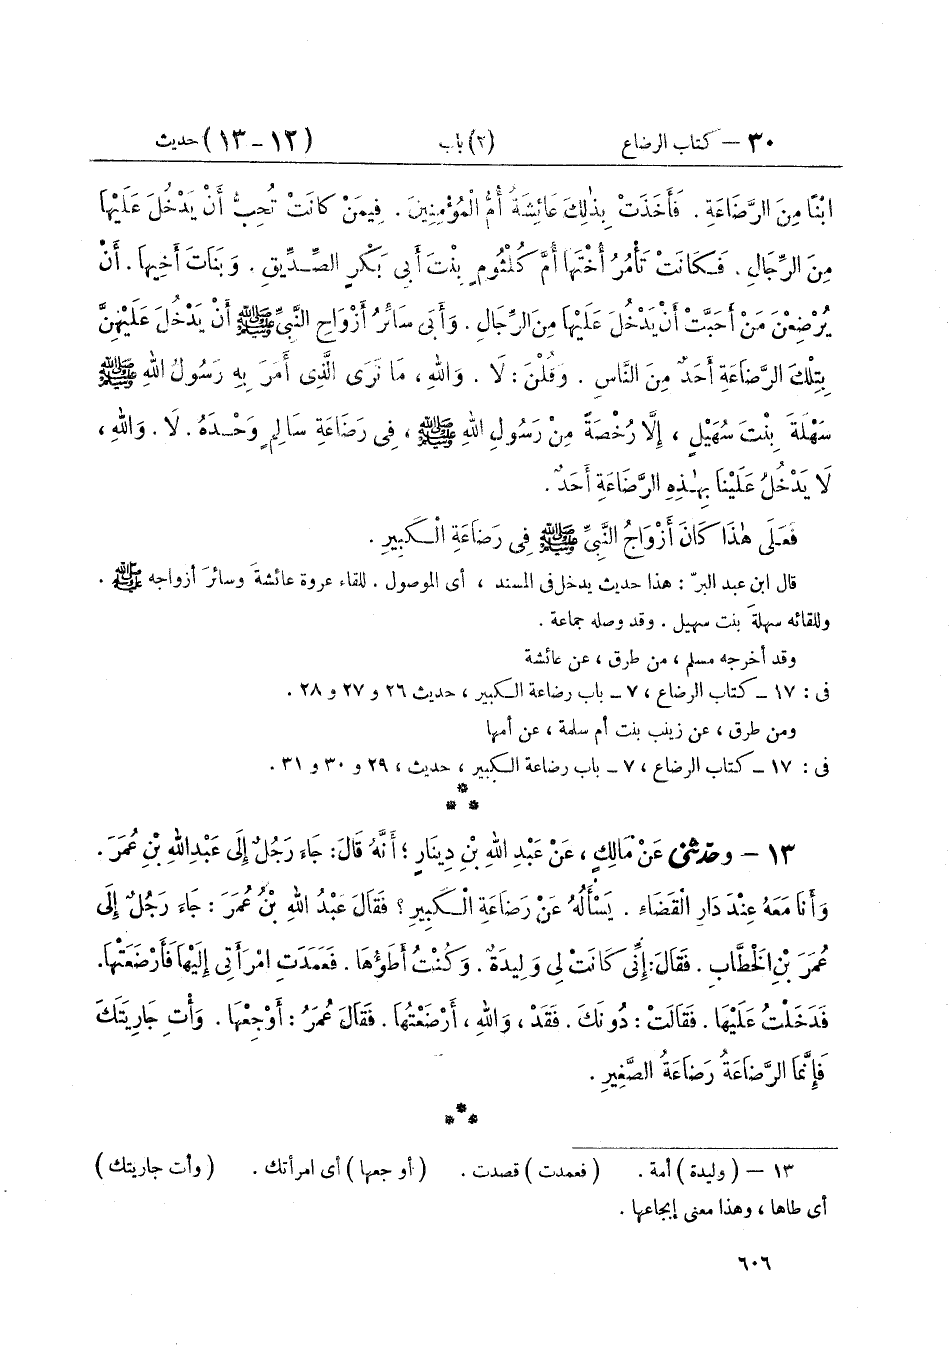 ٣٠ – كتاب الرضاع (٢) باب (١٢ – ١٣) حديث
ابْنًا مِنَ الرَّضَاعَةِ . فَأَخَذَتْ بِذٰلِكَ عَائِشَةُ أُمُّ الْمُؤْمِنِينَ . فِيمَنْ كَانَتْ تُحِبُّ أَنْ يَدْخُلَ عَلَيْهَا
مِنَ الرِّجَالِ . فَكَانَتْ تَأْمُرُ أُخْتَهَا أُمَّ كُلْثُومٍ بِنْتَ أَبِي بَكْرٍ الصِّدِّيقِ . وَبَنَاتَ أَخِيهَا . أَنْ
يُرْضِعْنَ مَنْ أَحَبَّتْ أَنْ يَدْخُلَ عَلَيْهَا مِنَ الرِّجَالِ . وَأَبَى سَائِرُ أَزْوَاجِ النَّبِيِّ ﷺ أَنْ يَدْخُلَ عَلَيْهِنَّ
بِتِلْكَ الرَّضَاعَةِ أَحَدٌ مِنَ النَّاسِ . وَقُلْنَ : لَا . وَاللهِ ، مَا نَرَى الَّذِى أَمَرَ بِهِ رَسُولُ اللهِ ﷺ
سَهْلَةَ بِنْتَ سُهَيْلٍ ، إِلَّا رُخْصَةً مِنْ رَسُولِ اللهِ ﷺ ، فِى رَضَاعَةِ سَالِمٍ وَحْدَهُ . لَا . وَاللهِ ،
لَا يَدْخُلُ عَلَيْنَا بِهٰذِهِ الرَّضَاعَةِ أَحَدٌ .
فَعَلَى هٰذَا كَانَ أَزْوَاجُ النَّبِيِّ ﷺ فِى رَضَاعَةِ الْكَبِيرِ .
قال ابن عبد البرّ : هذا حديث يدخل فى المسند ، أى الموصول . للقاء عروة عائشةَ وسائرَ أزواجه ﷺ .
وللقائه سهلةَ بنت سهيل . وقد وصله جماعة .
وقد أخرجه مسلم ، من طرق ، عن عائشة
فى : ١٧ – كتاب الرضاع ، ٧ – باب رضاعة الكبير ، حديث ٢٦ و ٢٧ و ٢٨ .
ومن طرق ، عن زينب بنت أم سلمة ، عن أمها
فى : ١٧ – كتاب الرضاع ، ٧ – باب رضاعة الكبير ، حديث ، ٢٩ و ٣٠ و ٣١ .
***
١٣ – وحدّثنى عَنْ مَالِكٍ ، عَنْ عَبْدِ اللهِ بْنِ دِينَارٍ ؛ أَنَّهُ قَالَ : جَاءَ رَجُلٌ إِلَى عَبْدِ اللهِ بْنِ عُمَرَ .
وَأَنَا مَعَهُ عِنْدَ دَارِ الْقَضَاءِ . يَسْأَلُهُ عَنْ رَضَاعَةِ الْكَبِيرِ ؟ فَقَالَ عَبْدُ اللهِ بْنُ عُمَرَ : جَاءَ رَجُلٌ إِلَى
عُمَرَ بْنِ الْخَطَّابِ . فَقَالَ : إِنِّى كَانَتْ لِى وَلِيدَةٌ . وَكُنْتُ أَطَؤُهَا . فَعَمَدَتِ امْرَأَتِى إِلَيْهَا فَأَرْضَعَتْهَا.
فَدَخَلْتُ عَلَيْهَا . فَقَالَتْ : دُونَكَ . فَقَدْ ، وَاللهِ ، أَرْضَعْتُهَا . فَقَالَ عُمَرُ : أَوْجِعْهَا . وَأْتِ جَارِيَتَكَ
فَإِنَّمَا الرَّضَاعَةُ رَضَاعَةُ الصَّغِيرِ .
***
١٣ – ( وليدة ) أمة . ( فعمدت ) قصدت . ( أوجعها ) أى امرأتك . ( وأت جاريتك )
أى طاها ، وهذا معنى إيجاعها .
٦٠٦